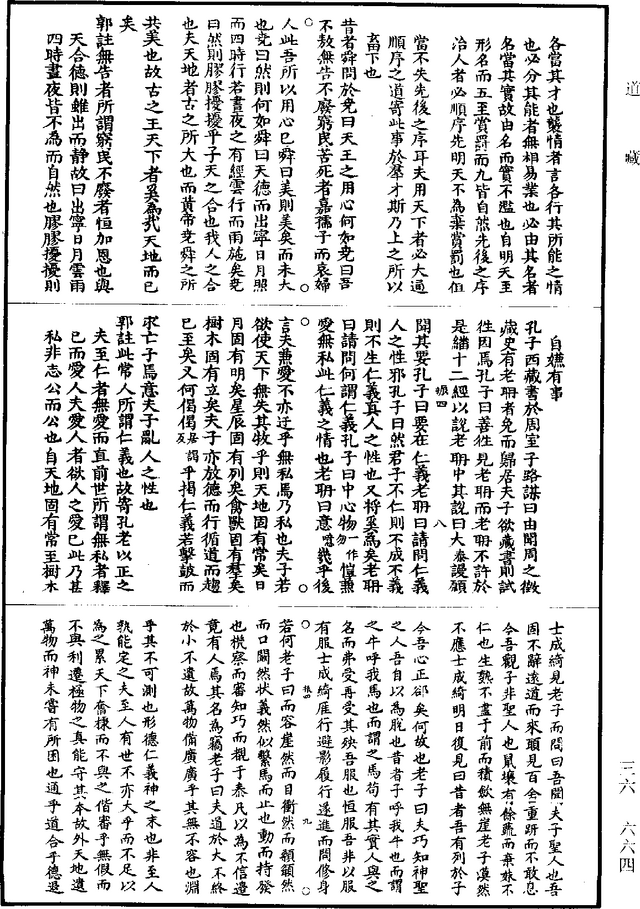 道藏
各當其才也襲情者言各行其所能之情
也必分其能者無相易業也必由其名者
名當其實故由名而實不濫也自明天至
形名而五至賞罰而九皆自然先後之序
治人者必順序先明天不為棄賞罰也但
當不失先後之序耳夫用天下者必大通
順序之道寄此事於羣才斯乃上之所以
畜下也
昔者舜問於堯曰天王之用心何如堯曰吾
不敖無告不廢窮民苦死者嘉孺子而哀婦
人此吾所以用心已舜曰美則美矣而未大
也堯曰然則何如舜曰天德而出寧日月照
而四時行若晝夜之有經雲行而雨施矣堯
曰然則膠膠擾擾乎子天之合也我人之合
也夫天地者古之所大也而黃帝堯舜之所
共美也故古之王天下者奚為哉天地而已
矣
郭註無告者所謂窮民不廢者恒加恩也與
天合德則雖出而靜故曰出寧日月雲雨
四時晝夜皆不為而自然也膠膠擾擾則
自嫌有事
孔子西藏書於周室子路謀曰由聞周之徵
藏史有老聃者免而歸居夫子欲藏書則試
往因焉孔子曰善往見老聃而老聃不許於
是繙十二經以說老聃中其說曰大泰謾願
八
聞其要孔子曰要在仁義老聃曰請問仁義
人之性邪孔子曰然君子不仁則不成不義
則不生仁義真人之性也又將奚為矣老聃
曰請問何謂仁義孔子曰中心物一作勿愷兼
愛無私此仁義之情也老聃曰意噫幾乎後
言夫兼愛不亦迂乎無私焉乃私也夫子若
欲使天下無失其牧乎則天地固有常矣日
月固有明矣星辰固有列矣禽獸固有羣矣
樹木固有立矣夫子亦放德而行循道而趨
已至矣又何偈偈居謁反乎揭仁義若擊鼓而
求亡子焉意夫子亂人之性也
郭註此常人所謂仁義也故寄孔老以正之
夫至仁者無愛而直前世所謂無私者釋
已而愛人夫愛人者欲人之愛已此乃甚
私非志公而公也自天地固有常至樹木
士成綺見老子而問曰吾聞夫子聖人也吾
固不辭遠道而來願見百舍重趼而不敢息
今吾觀子非聖人也鼠壤有餘蔬而棄妹不
仁也生熟不盡于前而積歛無崖老子漠然
不應士成綺明日復見曰昔者吾有列於子
今吾心正郤矣何故也老子曰夫巧知神聖
之人吾自以為脫也昔者子呼我牛也而謂
之牛呼我馬也而謂之馬苟有其實人與之
名而弗受再受其殃吾服也恒服吾非以服
有服士成綺鴈行避影履行遂進而問修身
九
若何老子曰而容崖然而目衝然而顙頯然
而口闞然狀義然似繫馬而止也動而持發
也機察而審知巧而覩于泰凡以為不信邊
竟有人焉其名為竊老子曰夫道於大不終
於小不遺故萬物備廣廣乎其無不容也淵
乎其不可測也形德仁義神之末也非至人
孰能定之夫至人有世不亦大乎而不足以
為之累天下奮棅而不與之偕審乎無假而
不與利遷極物之真能守其本故外天地遺
萬物而神未嘗有所困也通乎道合乎德退
三六
六六四